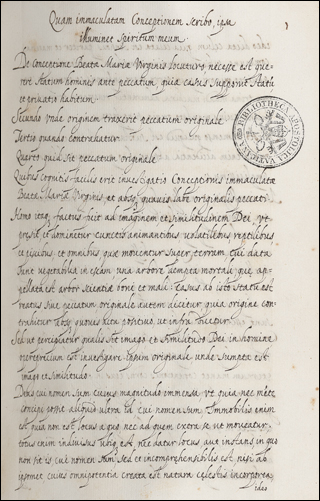 Quam immaculatam Conceptionem scribo, ipsa
illuminet Spiritum meum.
De conceptione Beatæ Mariæ Virginis locuturo necesse est quæ
rere statum hominis ante peccatum, quia casus supponit statū
et privatio habitum.
Secundo unde originem traxerit peccatum originale
Tertio quando contrahatur.
Quarto quid sit peccatum originale
Quibus cognitis facilis erit investigatio Conceptionis immaculatæ
Beatæ Mariæ Virginis et absq quavis labe originalis peccati.
Homo itaq factus fuit ad imaginem et similitudinem Dei vt
præsit et dominetur cunctis animantibus volatilibus reptilibus
et piscibus et omnibus quæ moventur super terram cui data
sunt vegetabilia in escam una arbore dempta mortali quæ ap-
pellata est arbor scientiæ boni et mali. casus ab isto statu est
reatus sive peccatum originale autem dicitur quia origine con-
trahitur absq vita ut infra
Sed ut percipiatur qualis sit imago et similitudo Dei in homine
est investigare originale unde sumpta est
imago et similitudo.
Deus cui nomen Sum cuius magnitudo immensa vt quia nec mēte
concipi potest aliquid ultra id cui nomen Sum. Immobilis enim
est quia non est locus a quo nec ad quem extra se ut moveatur
totus enim indivisus ubiq est nec datur locus aut instans in quo
non sit is cui nomen Sum sed et incomprehensibilis est nisi ab
ipsomet cuius omnipotentia creata est natura cælestis incorporea
ideo
BIBLIOTHECA APOSTOLICA VATICANA